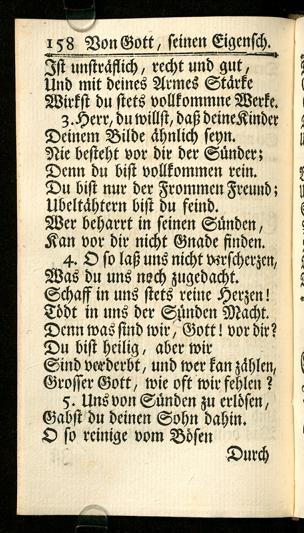 158 Von Gott, seinen Eigensch.
Ist unsträflich, recht und gut,
Und mit deines Armes Stärke
Wirkst du stets vollkommne Werke.
3. Herr, du willst, daß deine Kinder
Deinem Bilde ähnlich seyn.
Nie besteht vor dir der Sünder;
Denn du bist vollkommen rein.
Du bist nur der Frommen Freund;
Ubeltähtern bist du feind.
Wer beharrt in seinen Sünden,
Kan vor dir nicht Gnade finden.
4. O so laß uns nicht verscherzen,
Was du uns noch zugedacht.
Schaff in uns stets reine Herzen!
Tödt in uns der Sünden Macht.
Denn was sind wir, Gott! vor dir?
Du bist heilig, aber wir
Sind verderbt, und wer kan zählen,
Grosser Gott, wie oft wir fehlen?
5. Uns von Sünden zu erlösen,
Gabst du deinen Sohn dahin.
O so reinige vom Bösen
Durch